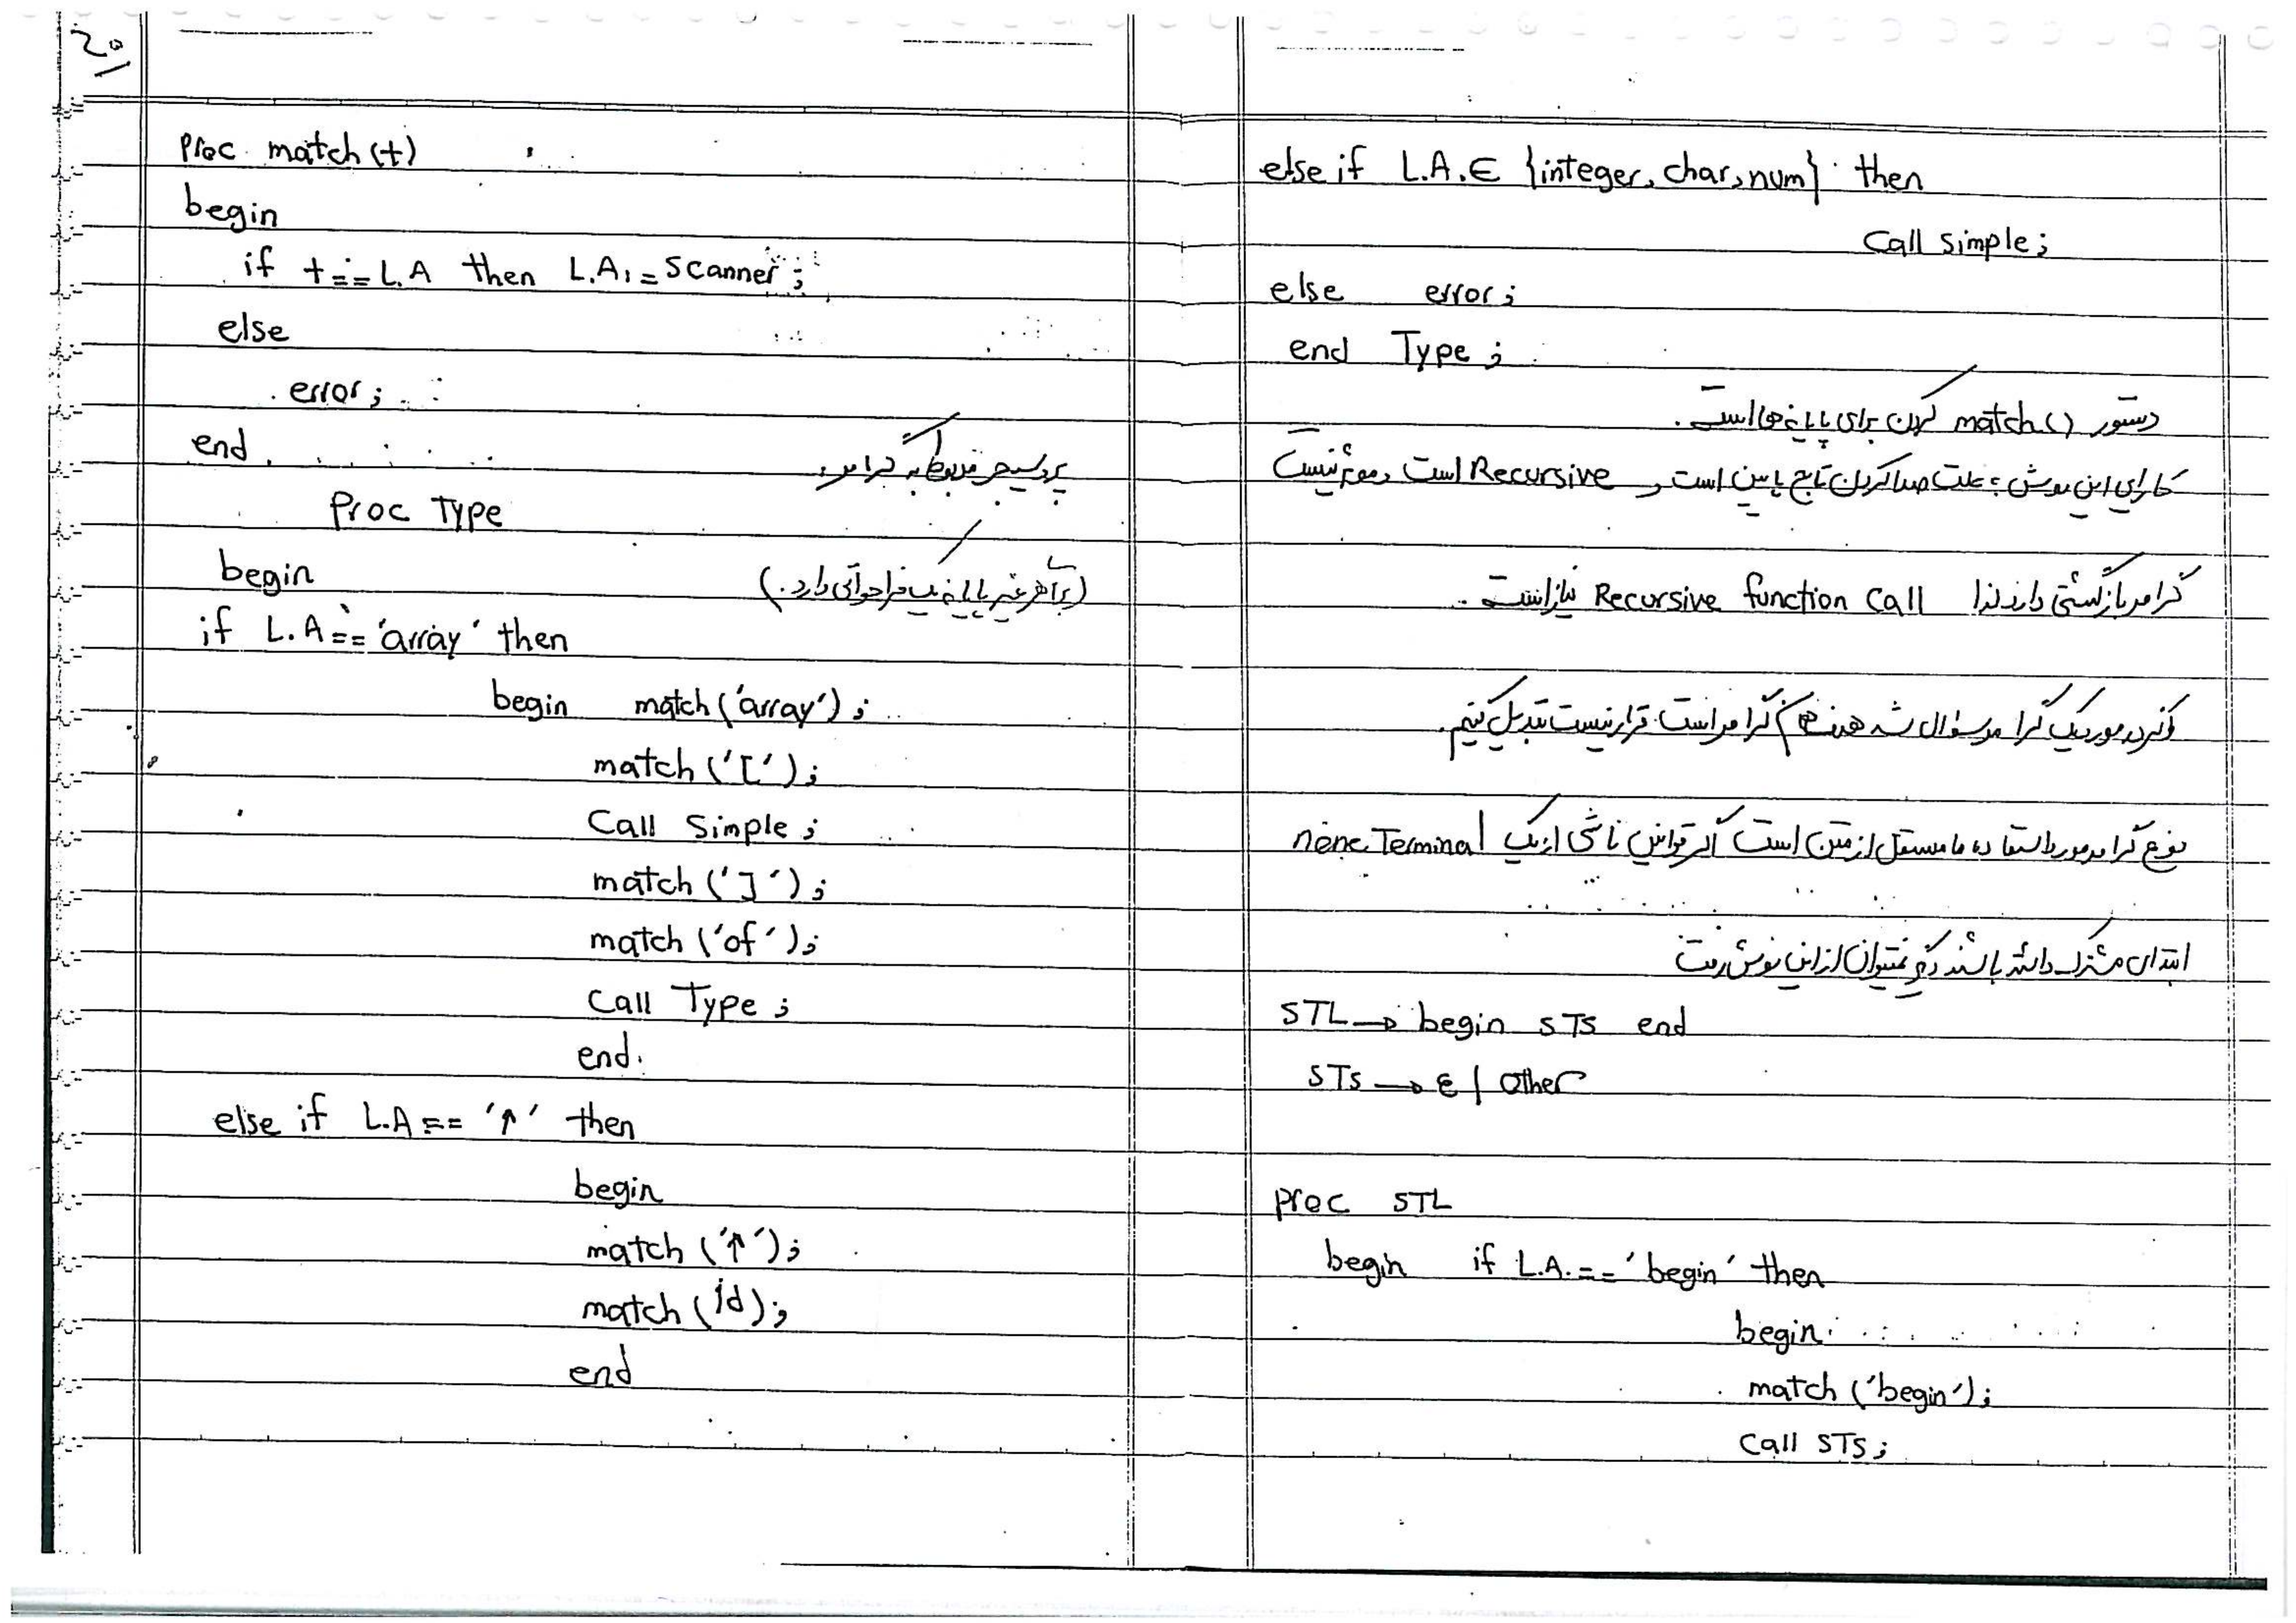 Proc match(t)
begin
if t == L.A then L.A := Scanner ;
else
error ;
end
پروسیجر مربوط به گرامر
Proc Type
begin
(برای هر غیر پایانه یک فراخوانی دارد.)
if L.A == 'array' then
begin match('array') ;
match('[') ;
Call Simple ;
match(']') ;
match('of') ;
Call Type ;
end.
else if L.A == '↑' then
begin
match('↑') ;
match(id) ;
end
else if L.A. ∈ {integer, char, num} then
Call simple ;
else error ;
end Type ;
دستور match() کردن برای پایانه ها است.
کارایی این روش به علت صدا کردن تابع پایین است و Recursive است و موثر نیست
گرامر بازگشتی دارند لذا Recursive function Call نیاز است.
در مورد یک گرامر سؤال شد همان گرامر است قرار نیست تبدیل کنیم.
نوع گرامر مورد استفاده ما مستقل از متن است اگر قوانین ناشی از یک none Terminal
ابتدای مشترک داشته باشند دیگر نمیتوان از این روش رفت
STL → begin STS end
STS → ε | Other
proc STL
begin if L.A. == 'begin' then
begin
match('begin') ;
Call STS ;